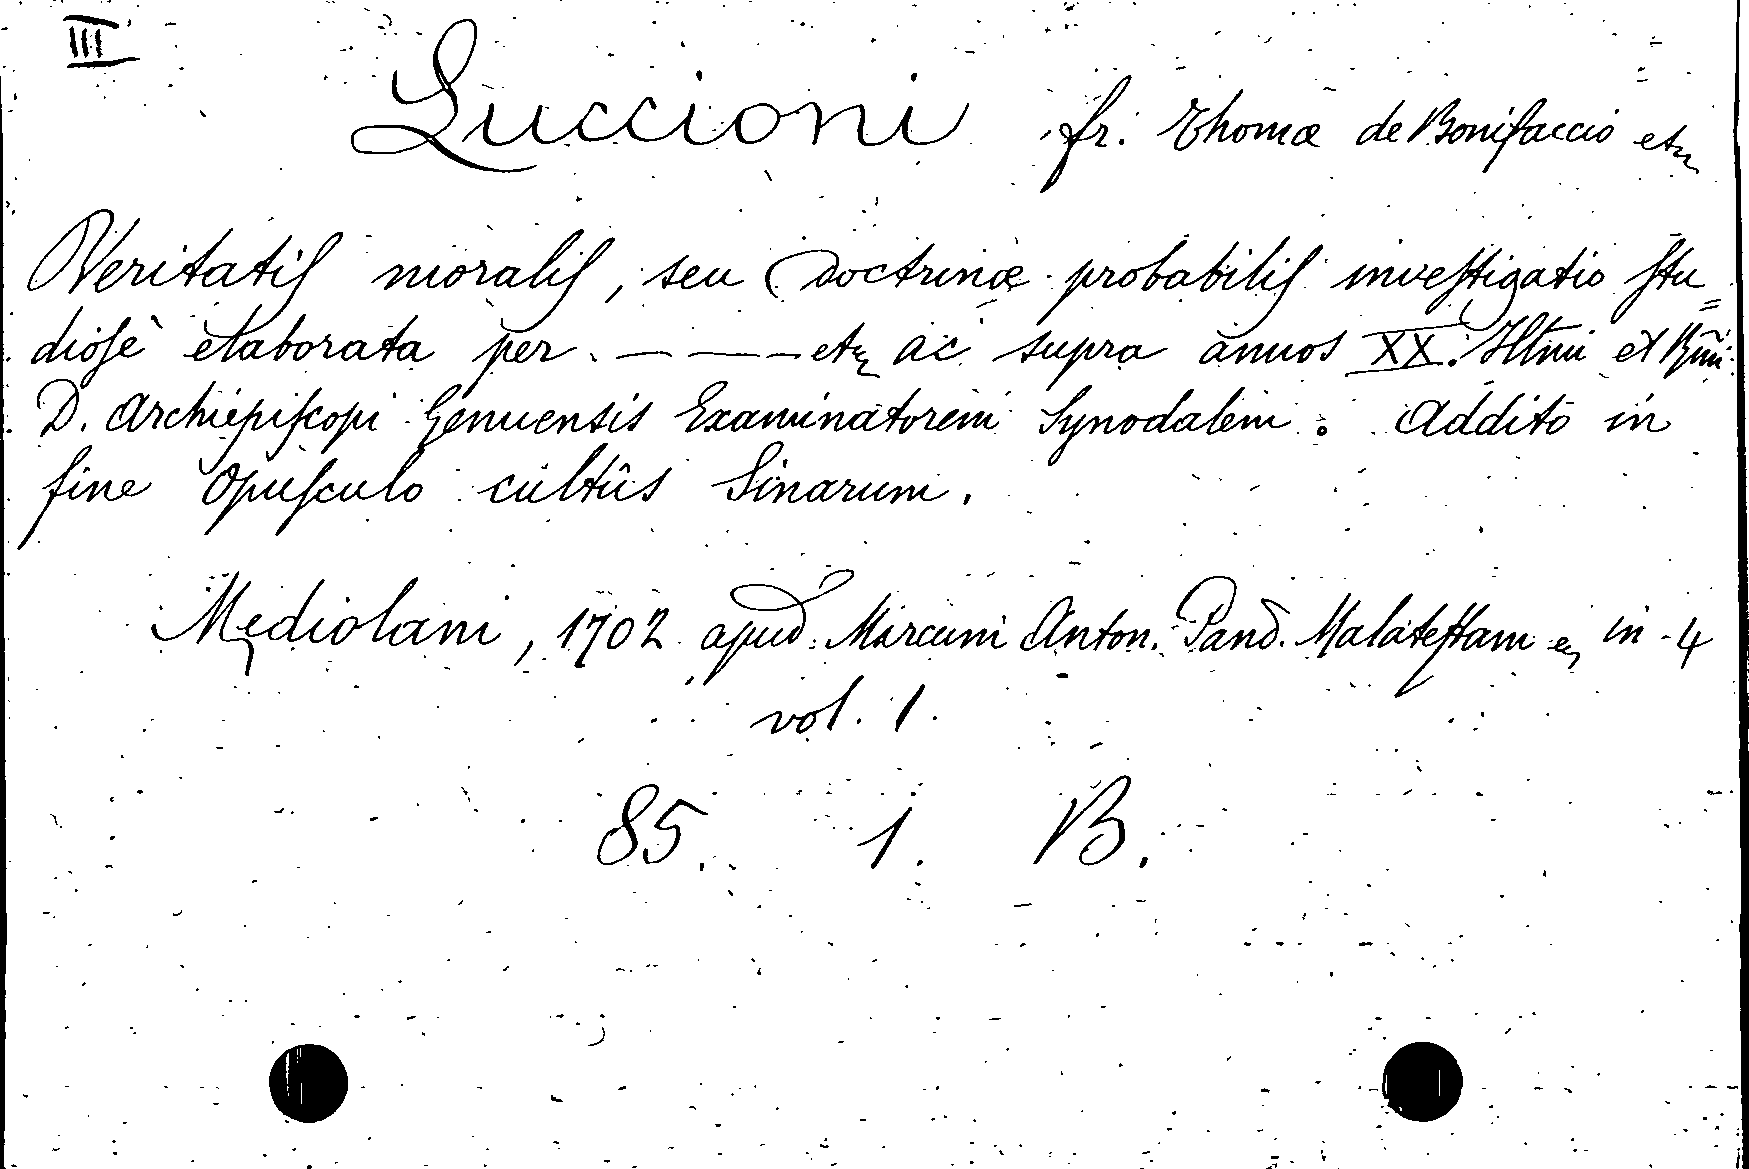 III
Luccioni fr. Thomæ de Bonifaccio etc
Veritatiſ moraliſ, seu Doctrinæ probabiliſ inveſtigatio ſtu=
dioſè elaborata per — — — etc ac supra annos XX. Illmi et Rm̃i
D. Archiepiſcopi Genuensis Examinatorem Synodalem. Addito in
fine Opuſculo cultûs Sinarum.
Mediolani, 1702 apud Marcum Anton. Pand. Malateſtam in-4
vol. 1.
85. 1. B.